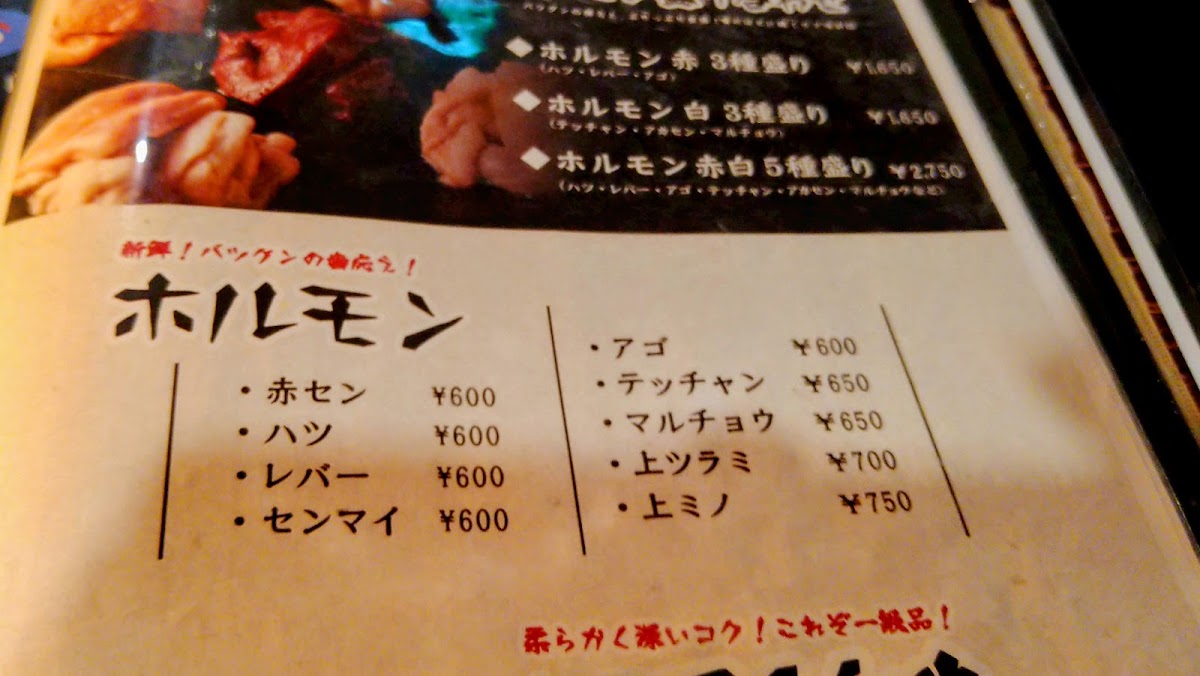 ◆ホルモン赤 3種盛り ¥1,650
(ハツ・レバー・アゴ)
◆ホルモン白 3種盛り ¥1,650
(テッチャン・アカセン・マルチョウ)
◆ホルモン赤白 5種盛り ¥2,750
(ハツ・レバー・アゴ・テッチャン・アカセン・マルチョウなど)
新鮮!バツグンの歯応え!
ホルモン
・赤セン ¥600
・ハツ ¥600
・レバー ¥600
・センマイ ¥600
・アゴ ¥600
・テッチャン ¥650
・マルチョウ ¥650
・上ツラミ ¥700
・上ミノ ¥750
柔らかく深いコク!これぞ一級品!